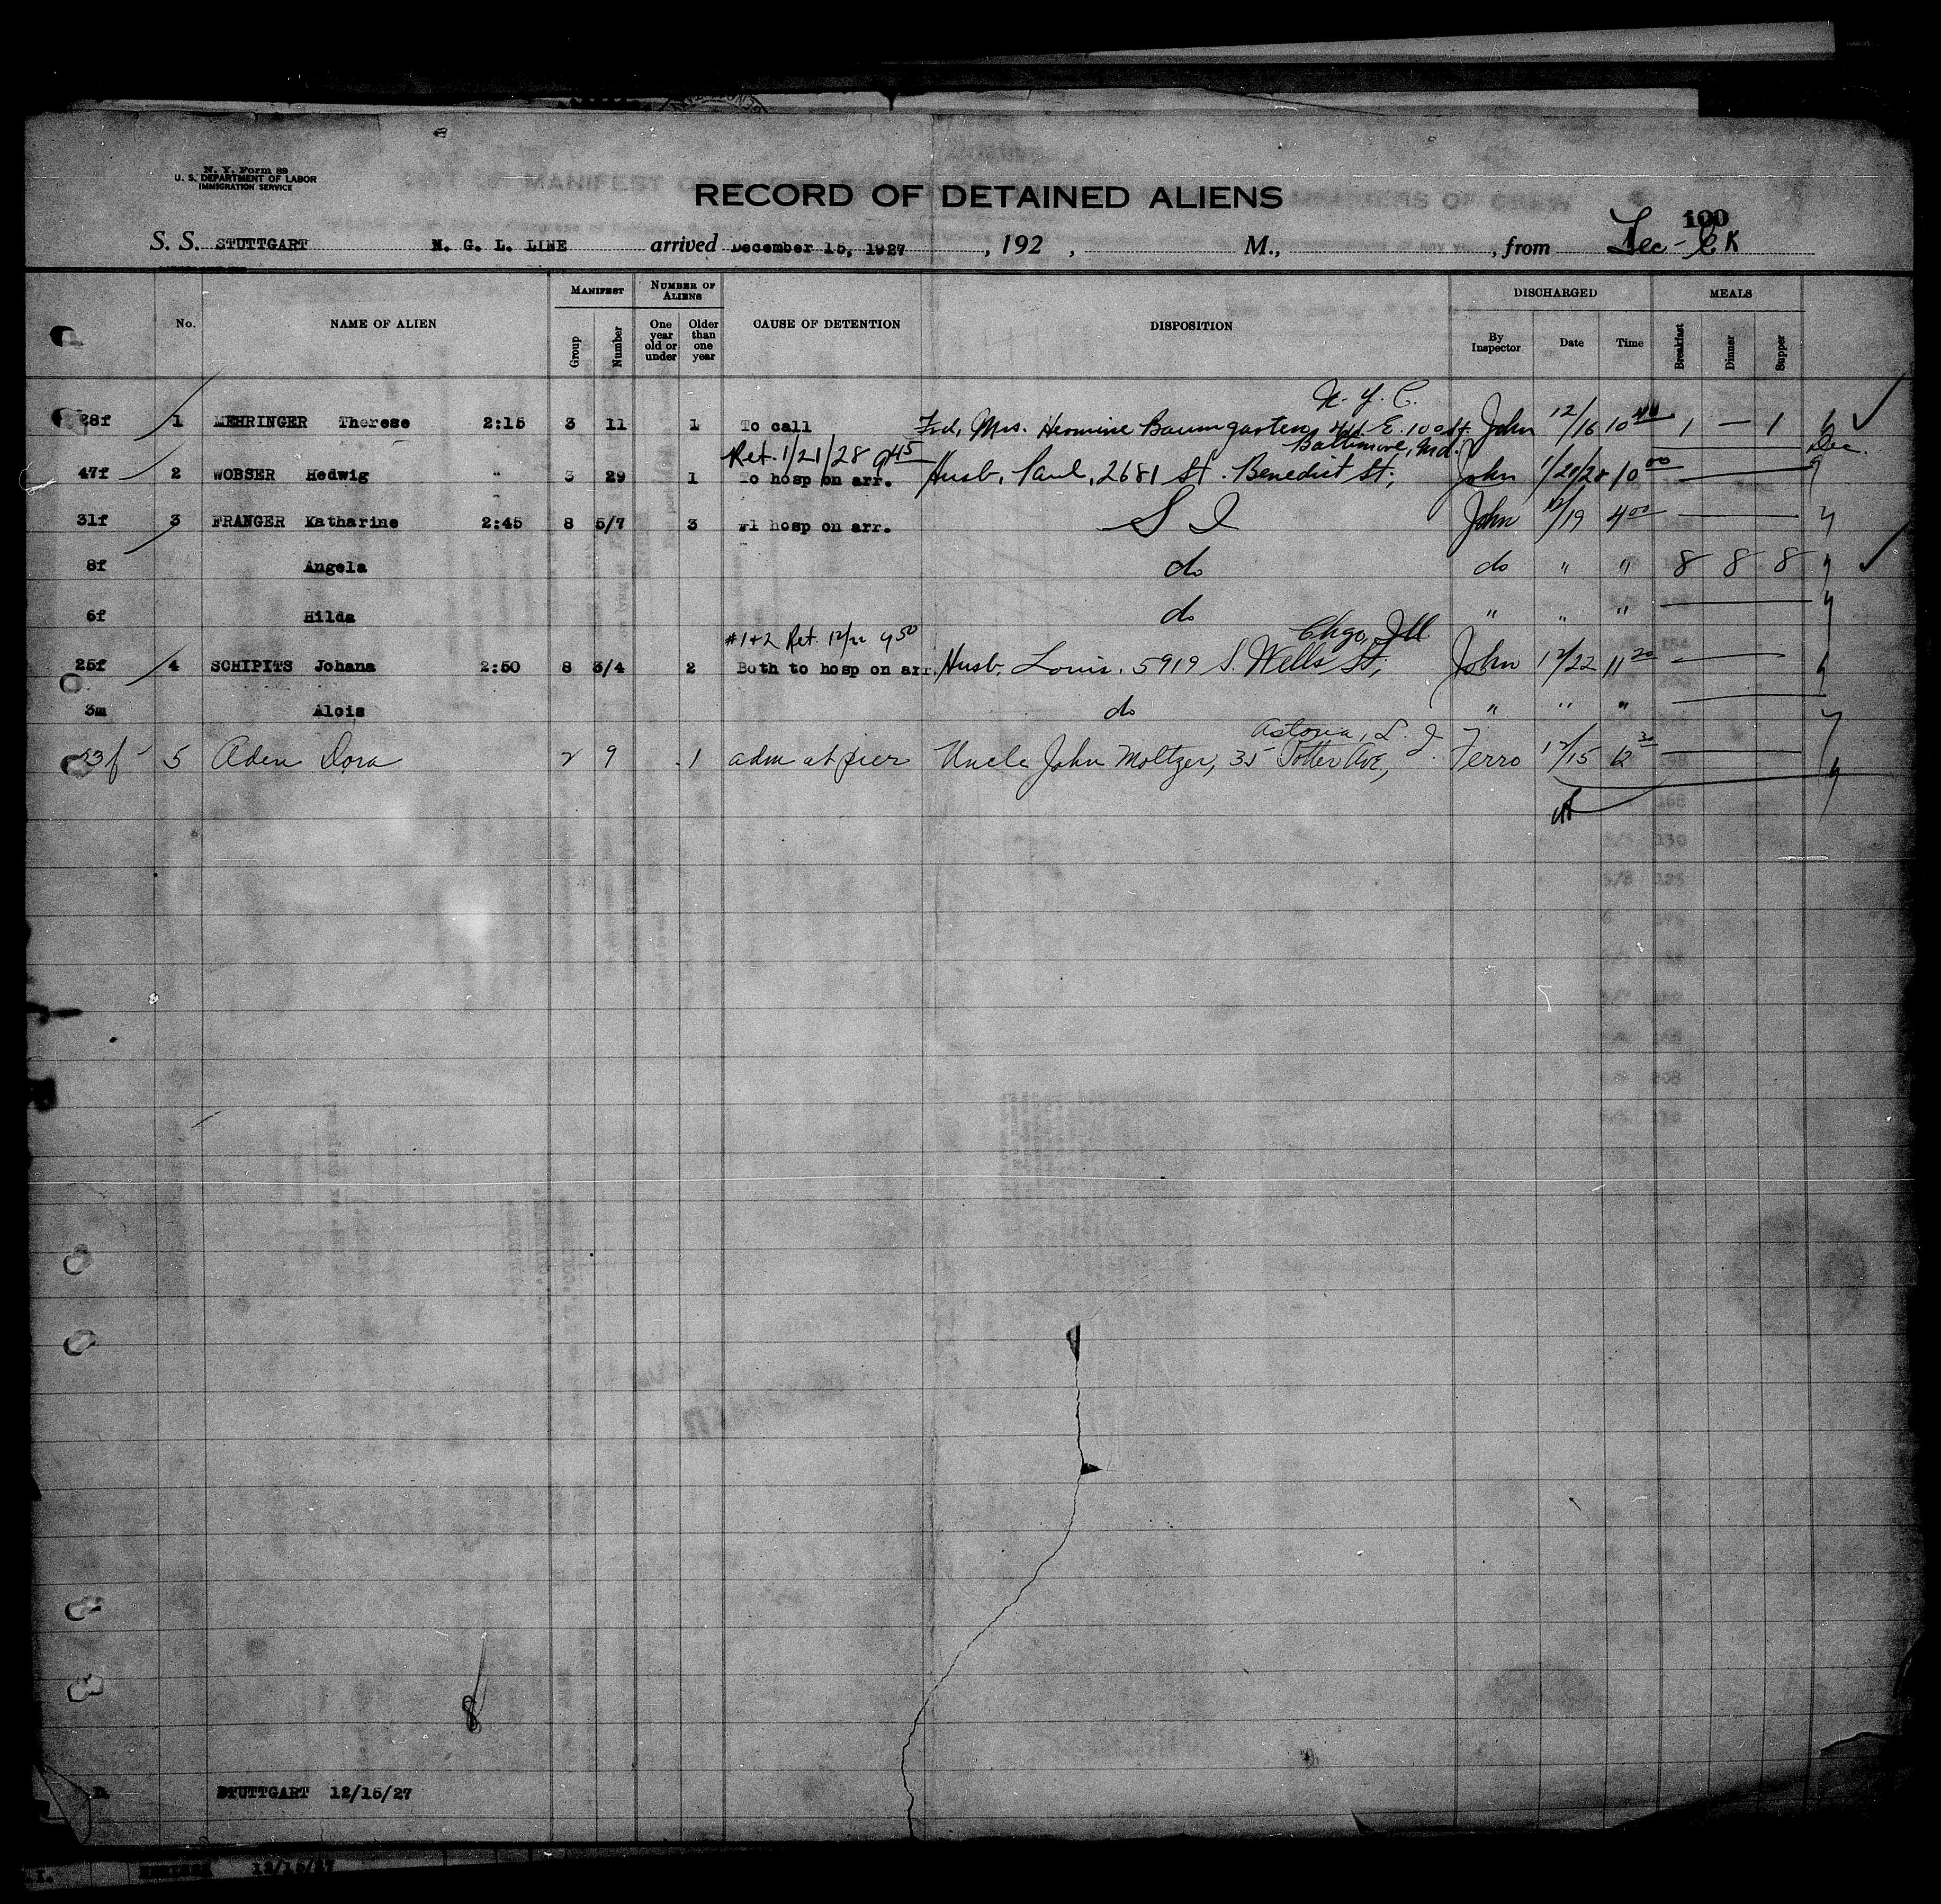 N. Y. Form 89
U. S. DEPARTMENT OF LABOR
IMMIGRATION SERVICE
RECORD OF DETAINED ALIENS
100
S. S. STUTTGART N. G. L. LINE arrived December 15, 1927, 192 , M., , from
MANIFEST NUMBER OF ALIENS DISCHARGED MEALS
No. NAME OF ALIEN Group Number One year old or under Older than one year CAUSE OF DETENTION DISPOSITION By Inspector Date Time Breakfast Dinner Supper
N. Y. C.
28f 1 MEHRINGER Therese 2:15 3 11 1 To call Frd, Mrs. Hermine Baumgarten, E. 100 St. John 12/16 10 40 1 — 1
Ret. 1/21/28 9 45 Baltimore, Md. Dec.
47f 2 WOBSER Hedwig " 3 29 1 To hosp on arr. Husb, Paul, 2681 St. Benedict St, John 1/28 10 00
31f 3 FRANGER Katharine 2:45 8 5/7 3 #1 hosp on arr. S I John 12/19 4 00
8f Angela do do " " 8 8 8
6f Hilda do " " "
#1+2 Ret. 12/22 9 50 Chgo, Ill
25f 4 SCHIPITS Johana 2:50 8 3/4 2 Both to hosp on arr. Husb, Louis, 5919 S. Wells St, John 12/22 11 20
3m Alois do " " "
Astoria, L. I.
23f 5 Aden Dora 2 9 1 adm at pier Uncle John Moltzer, 35 Potter Ave, Ferro 12/15 12 30
8
STUTTGART 12/15/27
12/15/27